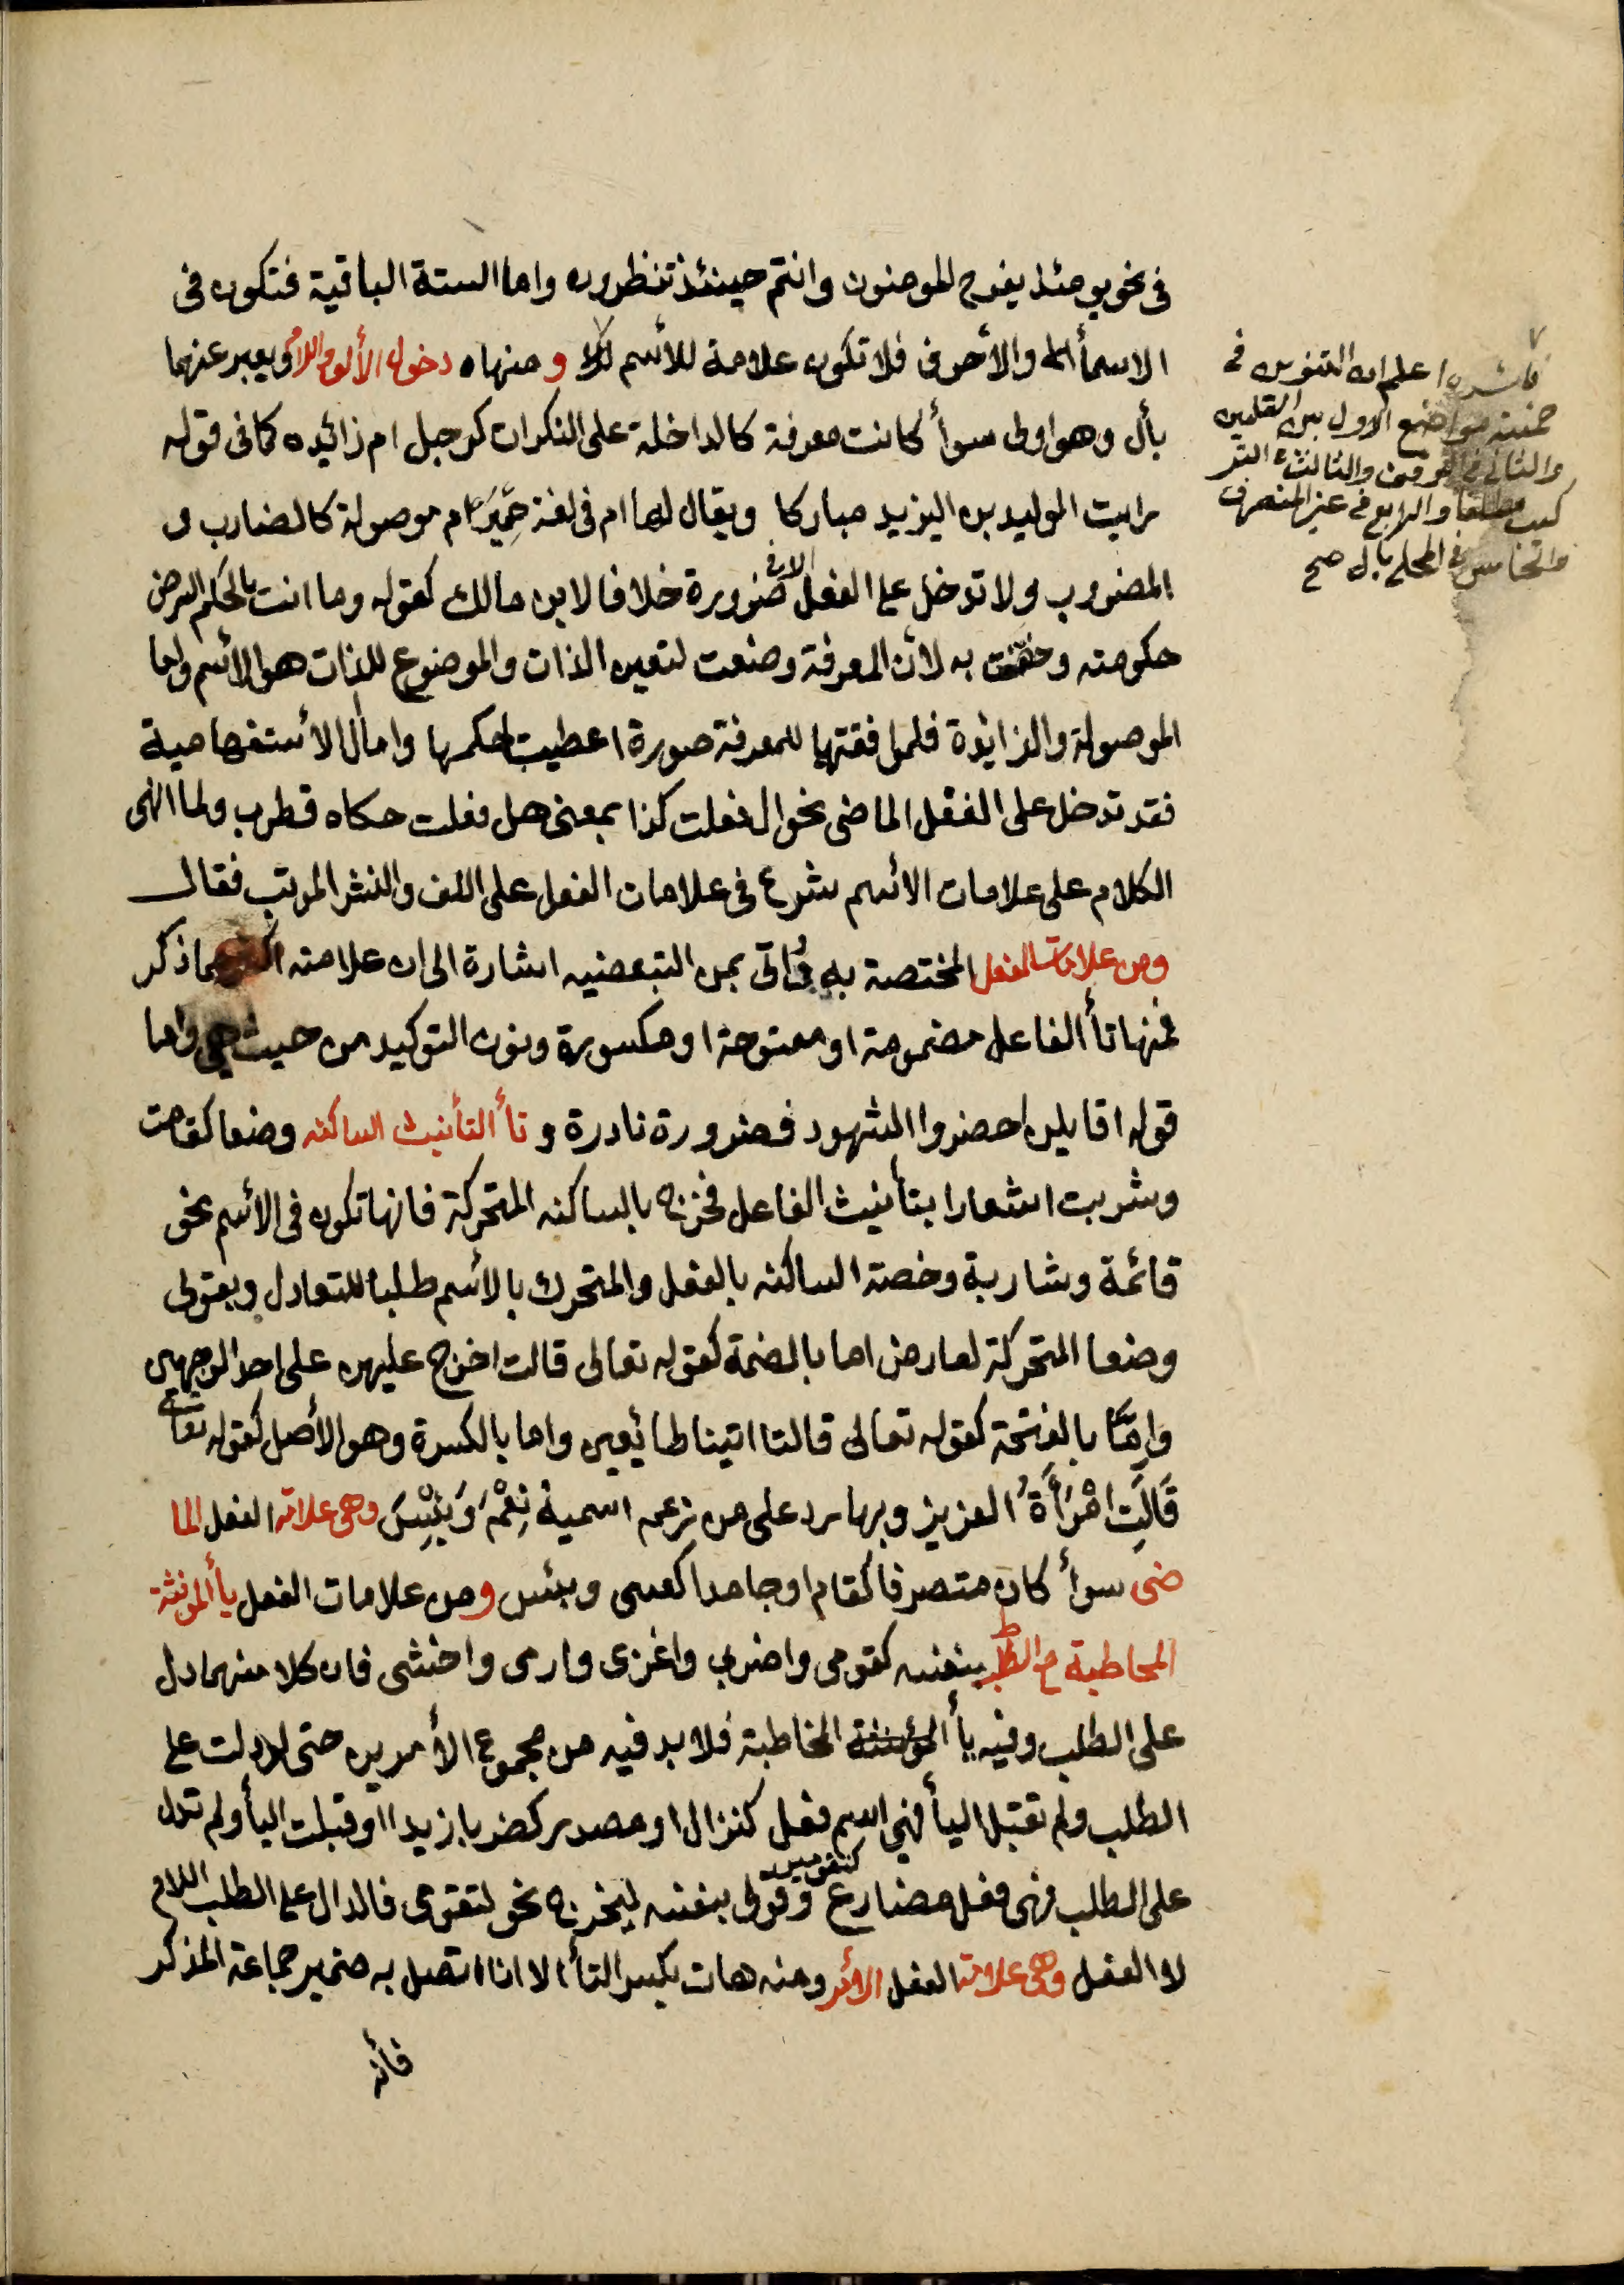 في نحو يومئذ يفرح المومنون وانتم حينئذ تنظرون واما الستة الباقية فتكون في
الاسمأ والأحرف فلا تكون علامة للأسم ومنها دخول الألف واللام ويعبر عنهما
بأل وهو اولى سوأ كانت معرفة كالداخلة على النكرات كرجل ام زائيده كما في قوله
رايت الوليد بن اليزيد مباركا ويقال لها ام في لغة حِمْيَر ام موصولة كالضارب و
المضروب ولا تدخل على الفعل الا في ضرورة خلافا لابن مالك كقوله وما انت بالحكم الترضى
حكومته وخصت به لأن المعرفة وضعت لتعين الذات والموضوع للذات هو الأسم واما
الموصولة والزايدة فلموافقتها للمعرفة صورة اعطيت حكمها واما أل الأستفهامية
فقد تدخل على الفعل الماضى نحو ال فعلت كذا بمعنى هل فعلت حكاه قطرب ولما انهى
الكلام على علامات الأسم شرع في علامات الفعل على اللف والنشر المرتب فقال
ومن علامات الفعل المختصة به وأتى بمن التبعضيه اشارة الى ان علامته اكثر مما ذكر
فمنها تأ الفاعل مضمومة او مفتوحة او مكسورة ونون التوكيد من حيث هي واما
قوله اقايلن احضروا الشهود فضرورة نادرة و تأ التأنيث الساكنه وضعا كقامت
وشربت اشعارا بتأنيث الفاعل فخرج بالساكنه المتحركة فانها تكون في الأسم نحو
قائمة وشاربة وخصة الساكنه بالفعل والمتحرك بالأسم طلبا للتعادل وبقولى
وضعا المتحركة لعارض اما بالضمة كقوله تعالى قالت اخرج عليهن على احد الوجهين
وإمّا بالفتحة كقوله تعالى قالتا اتينا طائيعين واما بالكسرة وهو الأصل كقوله تعالى
قَالَتِ امْرَأَةُ العزيز وبها رد على من زعم اسمية نِعْمَ وَبِئْسَ وهى علامة الفعل الما
ضى سوأ كان متصرفا كقام او جامدا كعسى وبئس ومن علامات الفعل يأ المونثة
المخاطبة مع الطلب بنفسه كقومى واضربي واغزى وارمى واخشى فان كلا منهما دل
على الطلب وفيه يأ المؤنثة المخاطبة فلا بد فيه من مجموع الأمرين حتى لو دلت على
الطلب ولم تقبل اليأ فهي اسم فعل كنزال او مصدر كضربا زيدا او قبلت اليأ ولم تدل
على الطلب فهى فعل مضارع كتقومين وقولى بنفسه ليخرج نحو لتقومى فالدال على الطلب اللام
لا الفعل وهى علامة الفعل الأمر ومنه هات بكسر التأ الا اذا اتصل به ضمير جماعة المذكر
فأنه
فائده اعلم ان التنوين في
خمسة مواضع الاول بين العلمين
والثاني في الوقف والثالث التر
كيب مطلقا والرابع في غير المنصرف
والخامس في المحلى بأل صح